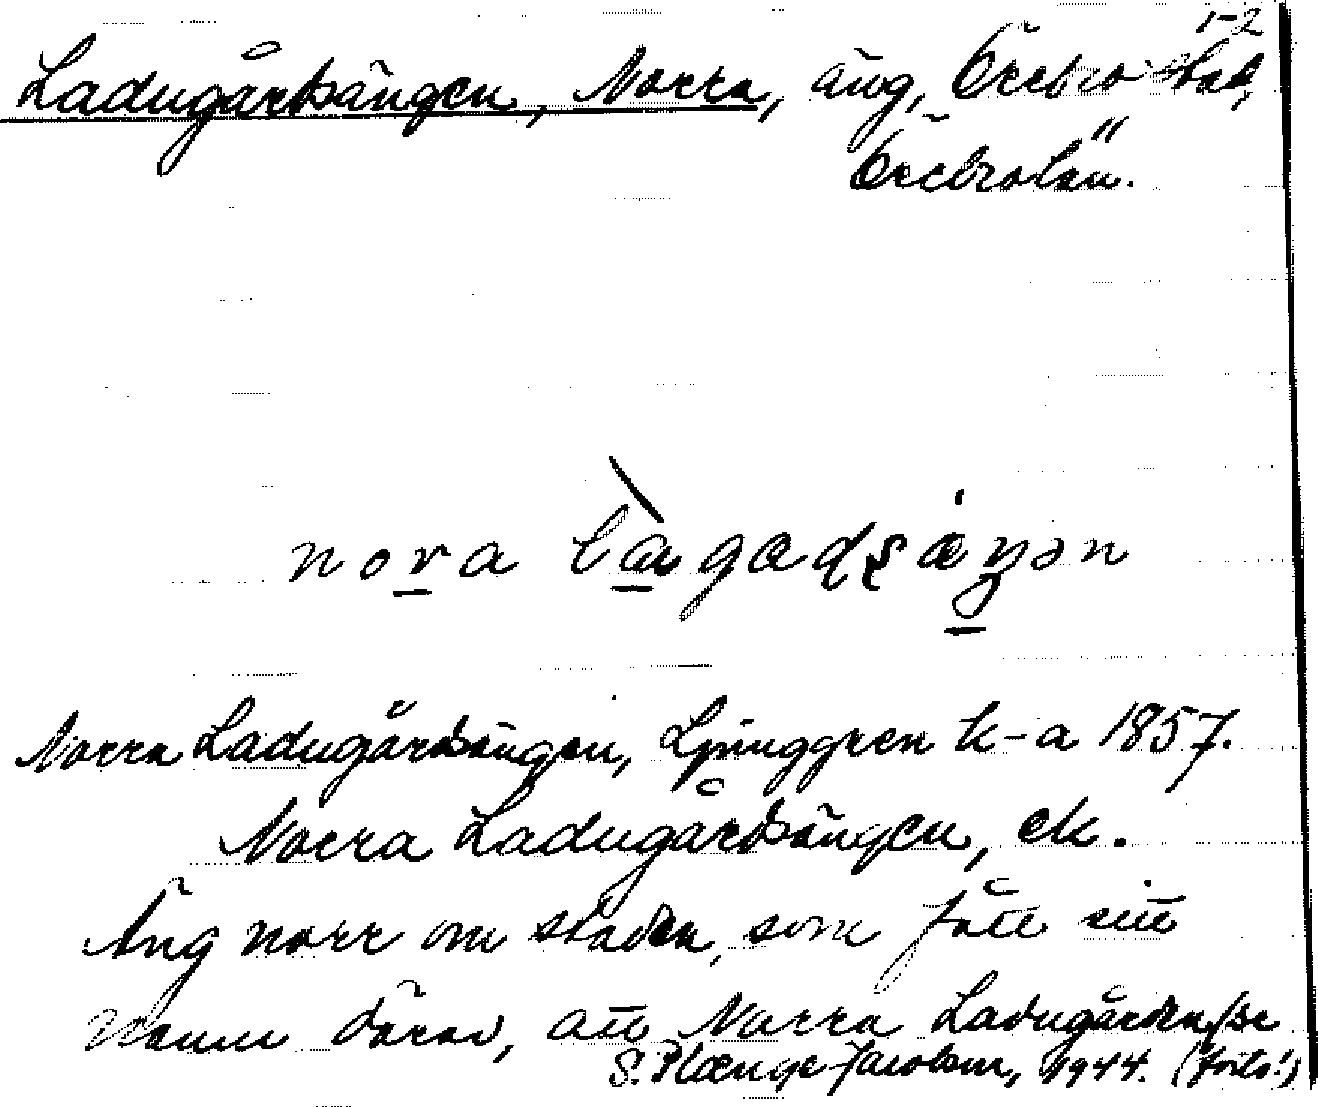 1-2
Ladugårdsängen, Norra, äng, Örebro stad,
Örebro län.
nora lagadsæŋən
Norra Ladugårdsängen, Ljunggren k-a 1857.
Norra Ladugårdsängen, ek.
Äng norr om staden, som fått sitt
namn därav, att Norra Ladugården
S. Plænge Jacobson, 1944. (forts!)